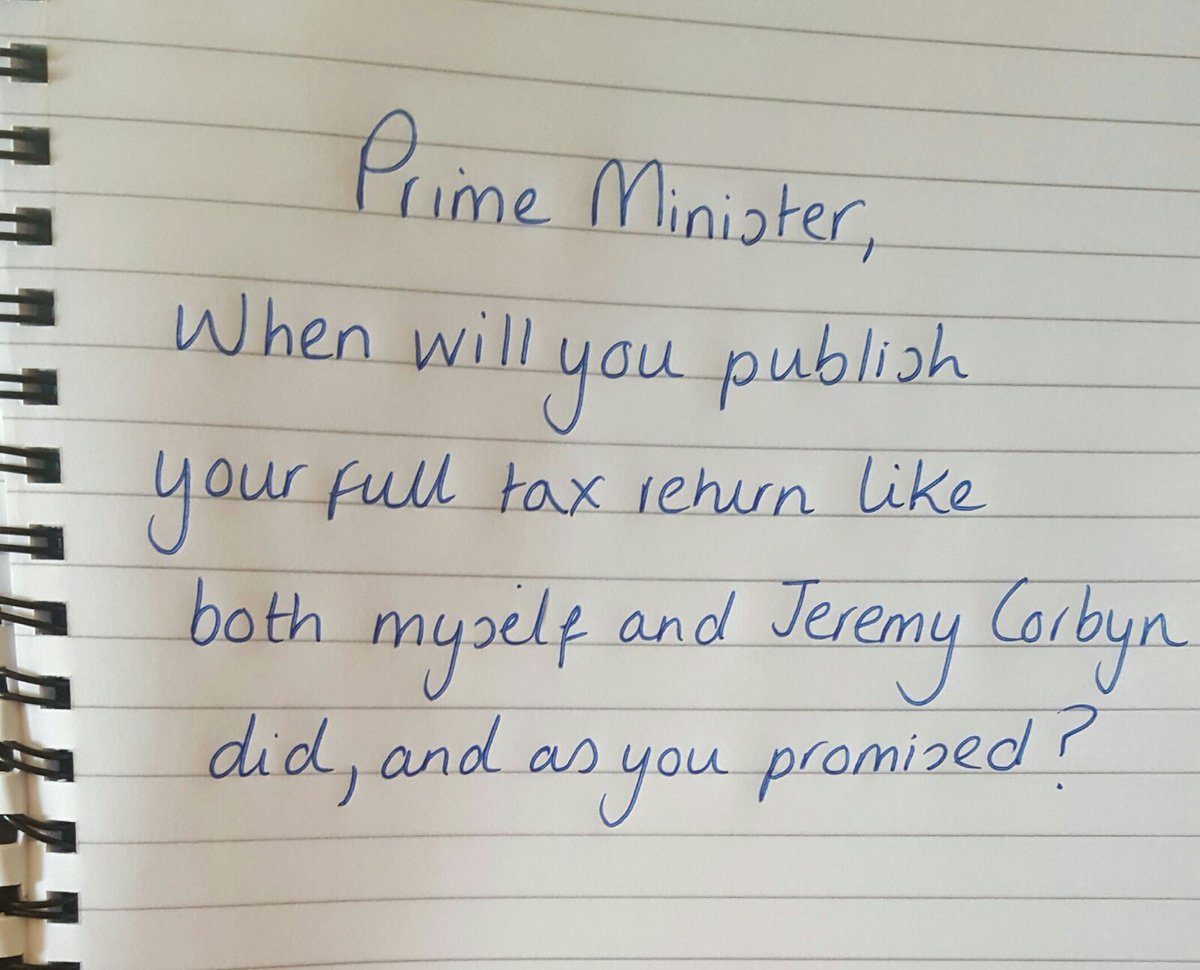 Prime Minister,
When will you publish
your full tax return like
both myself and Jeremy Corbyn
did, and as you promised?